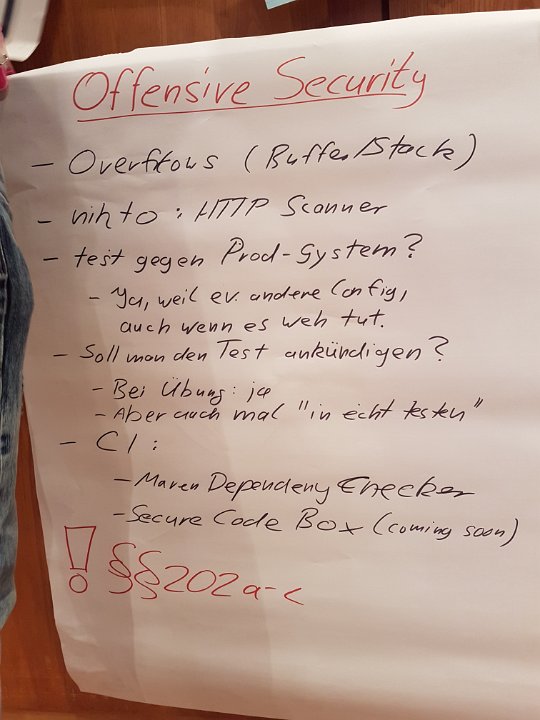 Offensive Security
- Overflows (Buffer/Stack)
- nikto : HTTP Scanner
- test gegen Prod-System?
- Ja, weil ev. andere Config,
auch wenn es weh tut.
- Soll man den Test ankündigen?
- Bei Übung: ja
- Aber auch mal "in echt testen"
- CI :
- Maven Dependeny Checker
- Secure Code Box (coming soon)
! §§202a-c